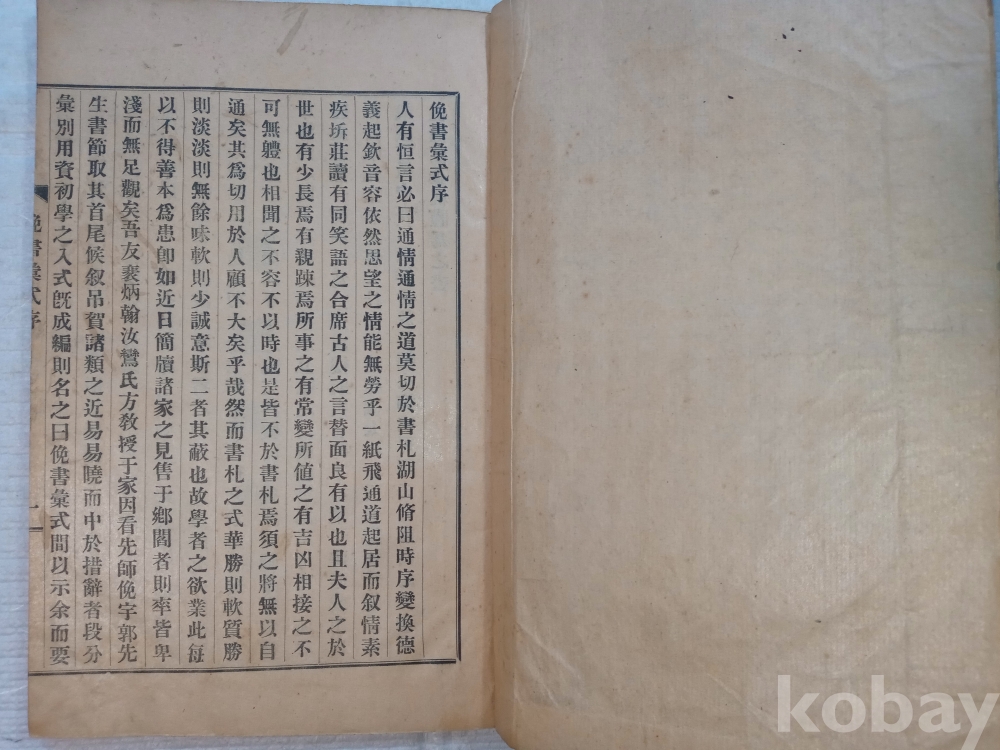 俛書彙式序
人有恒言必曰通情通情之道莫切於書札湖山脩阻時序變換德
義起欽音容依然思望之情能無勞乎一紙飛通道起居而叙情素
疾坼莊讀有同笑語之合席古人之言替面良有以也且夫人之於
世也有少長焉有親踈焉所事之有常變所値之有吉凶相接之不
可無軆也相聞之不容不以時也是皆不於書札焉須之將無以自
通矣其爲切用於人顧不大矣乎哉然而書札之式華勝則軟質勝
則淡淡則無餘味軟則少誠意斯二者其蔽也故學者之欲業此每
以不得善本爲患卽如近日簡牘諸家之見售于鄕閭者則率皆卑
淺而無足觀矣吾友裵炳翰汝鸞氏方敎授于家因看先師俛宇郭先
生書節取其首尾候叙吊賀諸類之近易易曉而中於措辭者段分
彙別用資初學之入式旣成編則名之曰俛書彙式間以示余而要
俛書彙式序
一
kobay